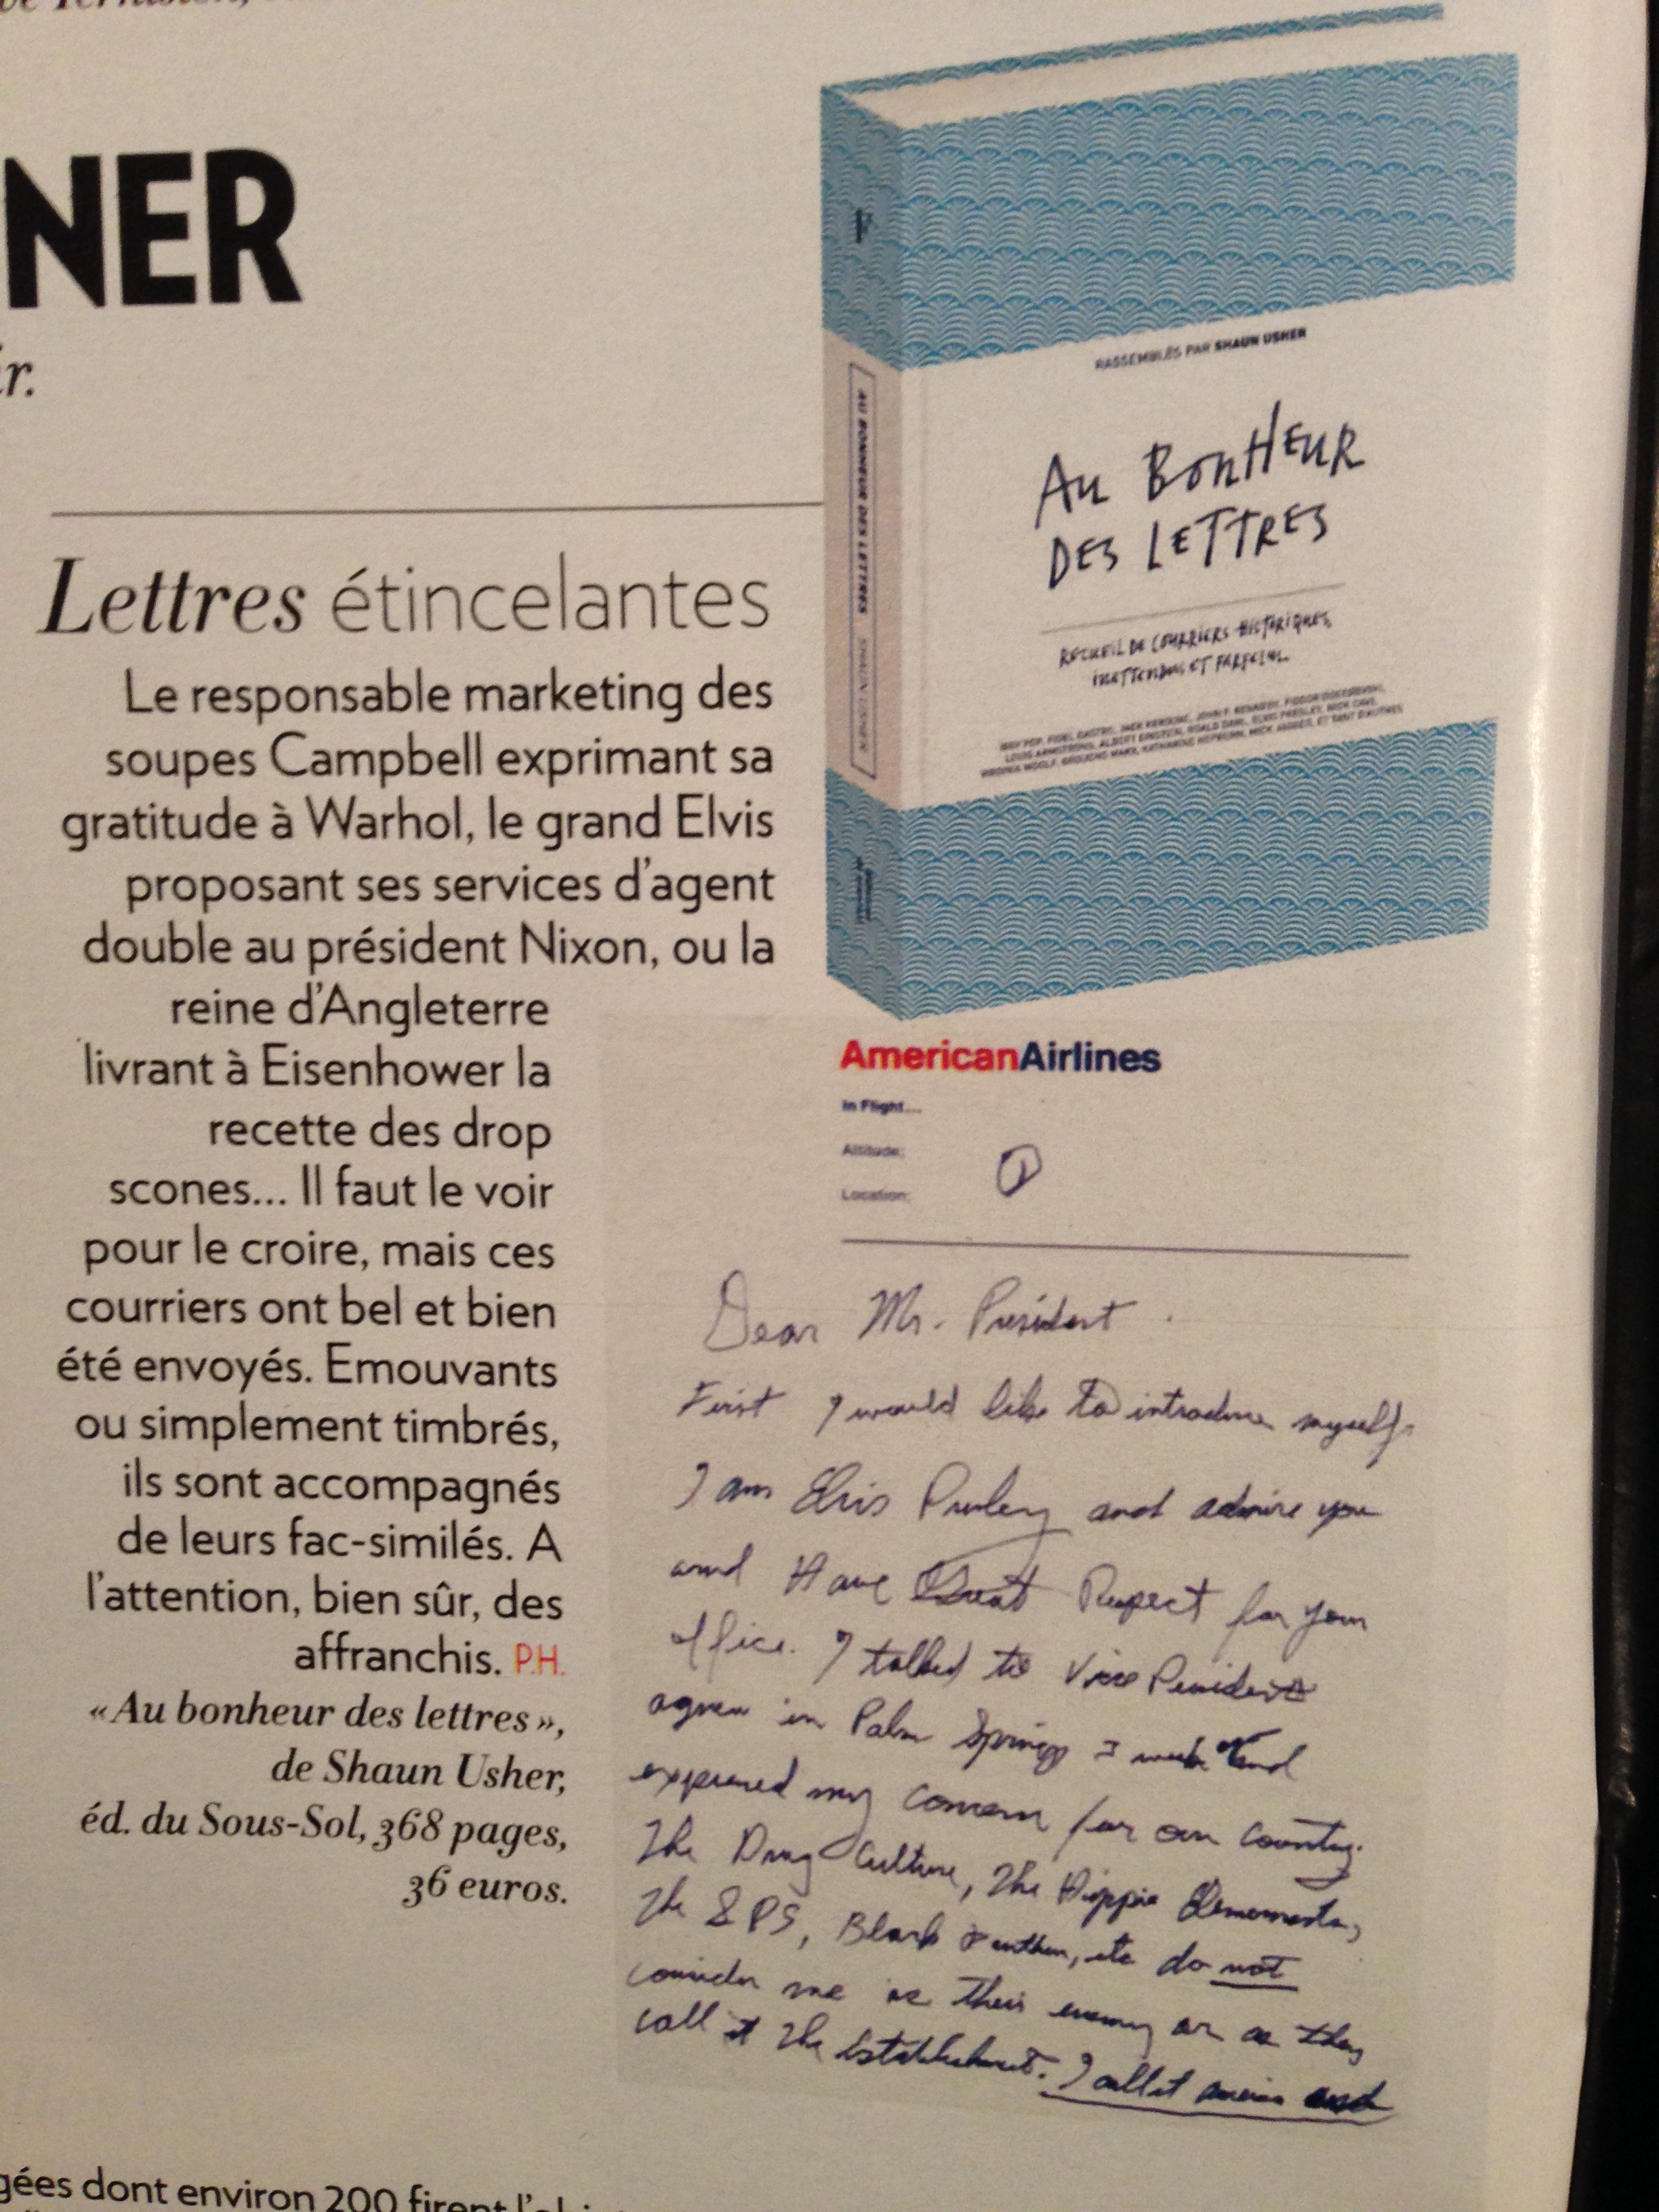 NER
Lettres étincelantes
Le responsable marketing des
soupes Campbell exprimant sa
gratitude à Warhol, le grand Elvis
proposant ses services d'agent
double au président Nixon, ou la
reine d'Angleterre
livrant à Eisenhower la
recette des drop
scones... Il faut le voir
pour le croire, mais ces
courriers ont bel et bien
été envoyés. Emouvants
ou simplement timbrés,
ils sont accompagnés
de leurs fac-similés. A
l'attention, bien sûr, des
affranchis. P.H.
«Au bonheur des lettres»,
de Shaun Usher,
éd. du Sous-Sol, 368 pages,
36 euros.
gées dont environ 200 firent
F
AU BONHEUR DES LETTRES SHAUN USHER
RASSEMBLÉS PAR SHAUN USHER
AU BONHEUR
DES LETTRES
RECUEIL DE COURRIERS HISTORIQUES,
INATTENDUS ET FARFELUS
IGGY POP, FIDEL CASTRO, JACK KEROUAC, JOHN F. KENNEDY, FIODOR DOSTOÏEVSKI,
LOUIS ARMSTRONG, ALBERT EINSTEIN, ROALD DAHL, ELVIS PRESLEY, NICK CAVE,
VIRGINIA WOOLF, GROUCHO MARX, KATHARINE HEPBURN, MICK JAGGER, ET TANT D'AUTRES
AmericanAirlines
In Flight...
Altitude:
Location:
Dear Mr. President.
First I would like to introduce myself.
I am Elvis Presley and admire you
and Have Great Respect for your
office. I talked to Vice President
agnew in Palm Springs 3 week and
expressed my concern for our country.
The Drug Culture, The Hippie Elements,
The SDS, Black Panthers, etc do not
consider me as their enemy or as they
call it The Establishment. I call it america and